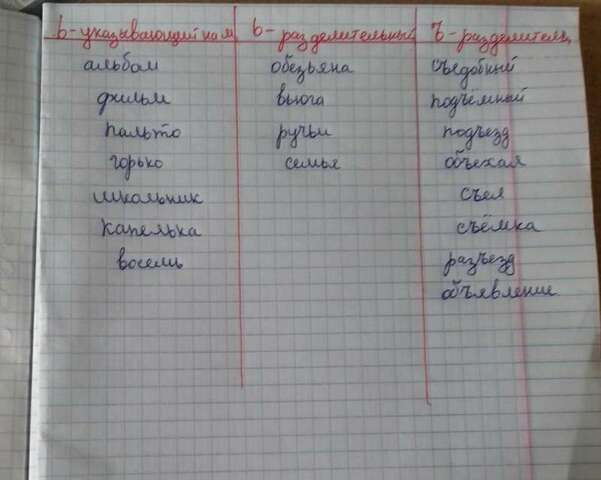 ь-указывающий на м. ь-разделительный ъ-разделитель.
альбом обезьяна съедобный
фильм вьюга подъемный
пальто ручьи подъезд
горько семья объехал
школьник съел
капелька съёмка
восемь разъезд
объявление